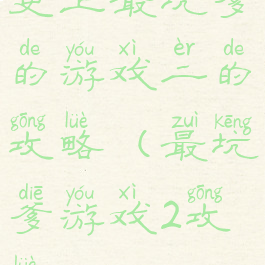 史上最坑爹
de yóu xì èr de
的游戏二的
gōng lüè zuì Kēng
攻略（最坑
diē yóu xì gōng
爹游戏2攻
lüè